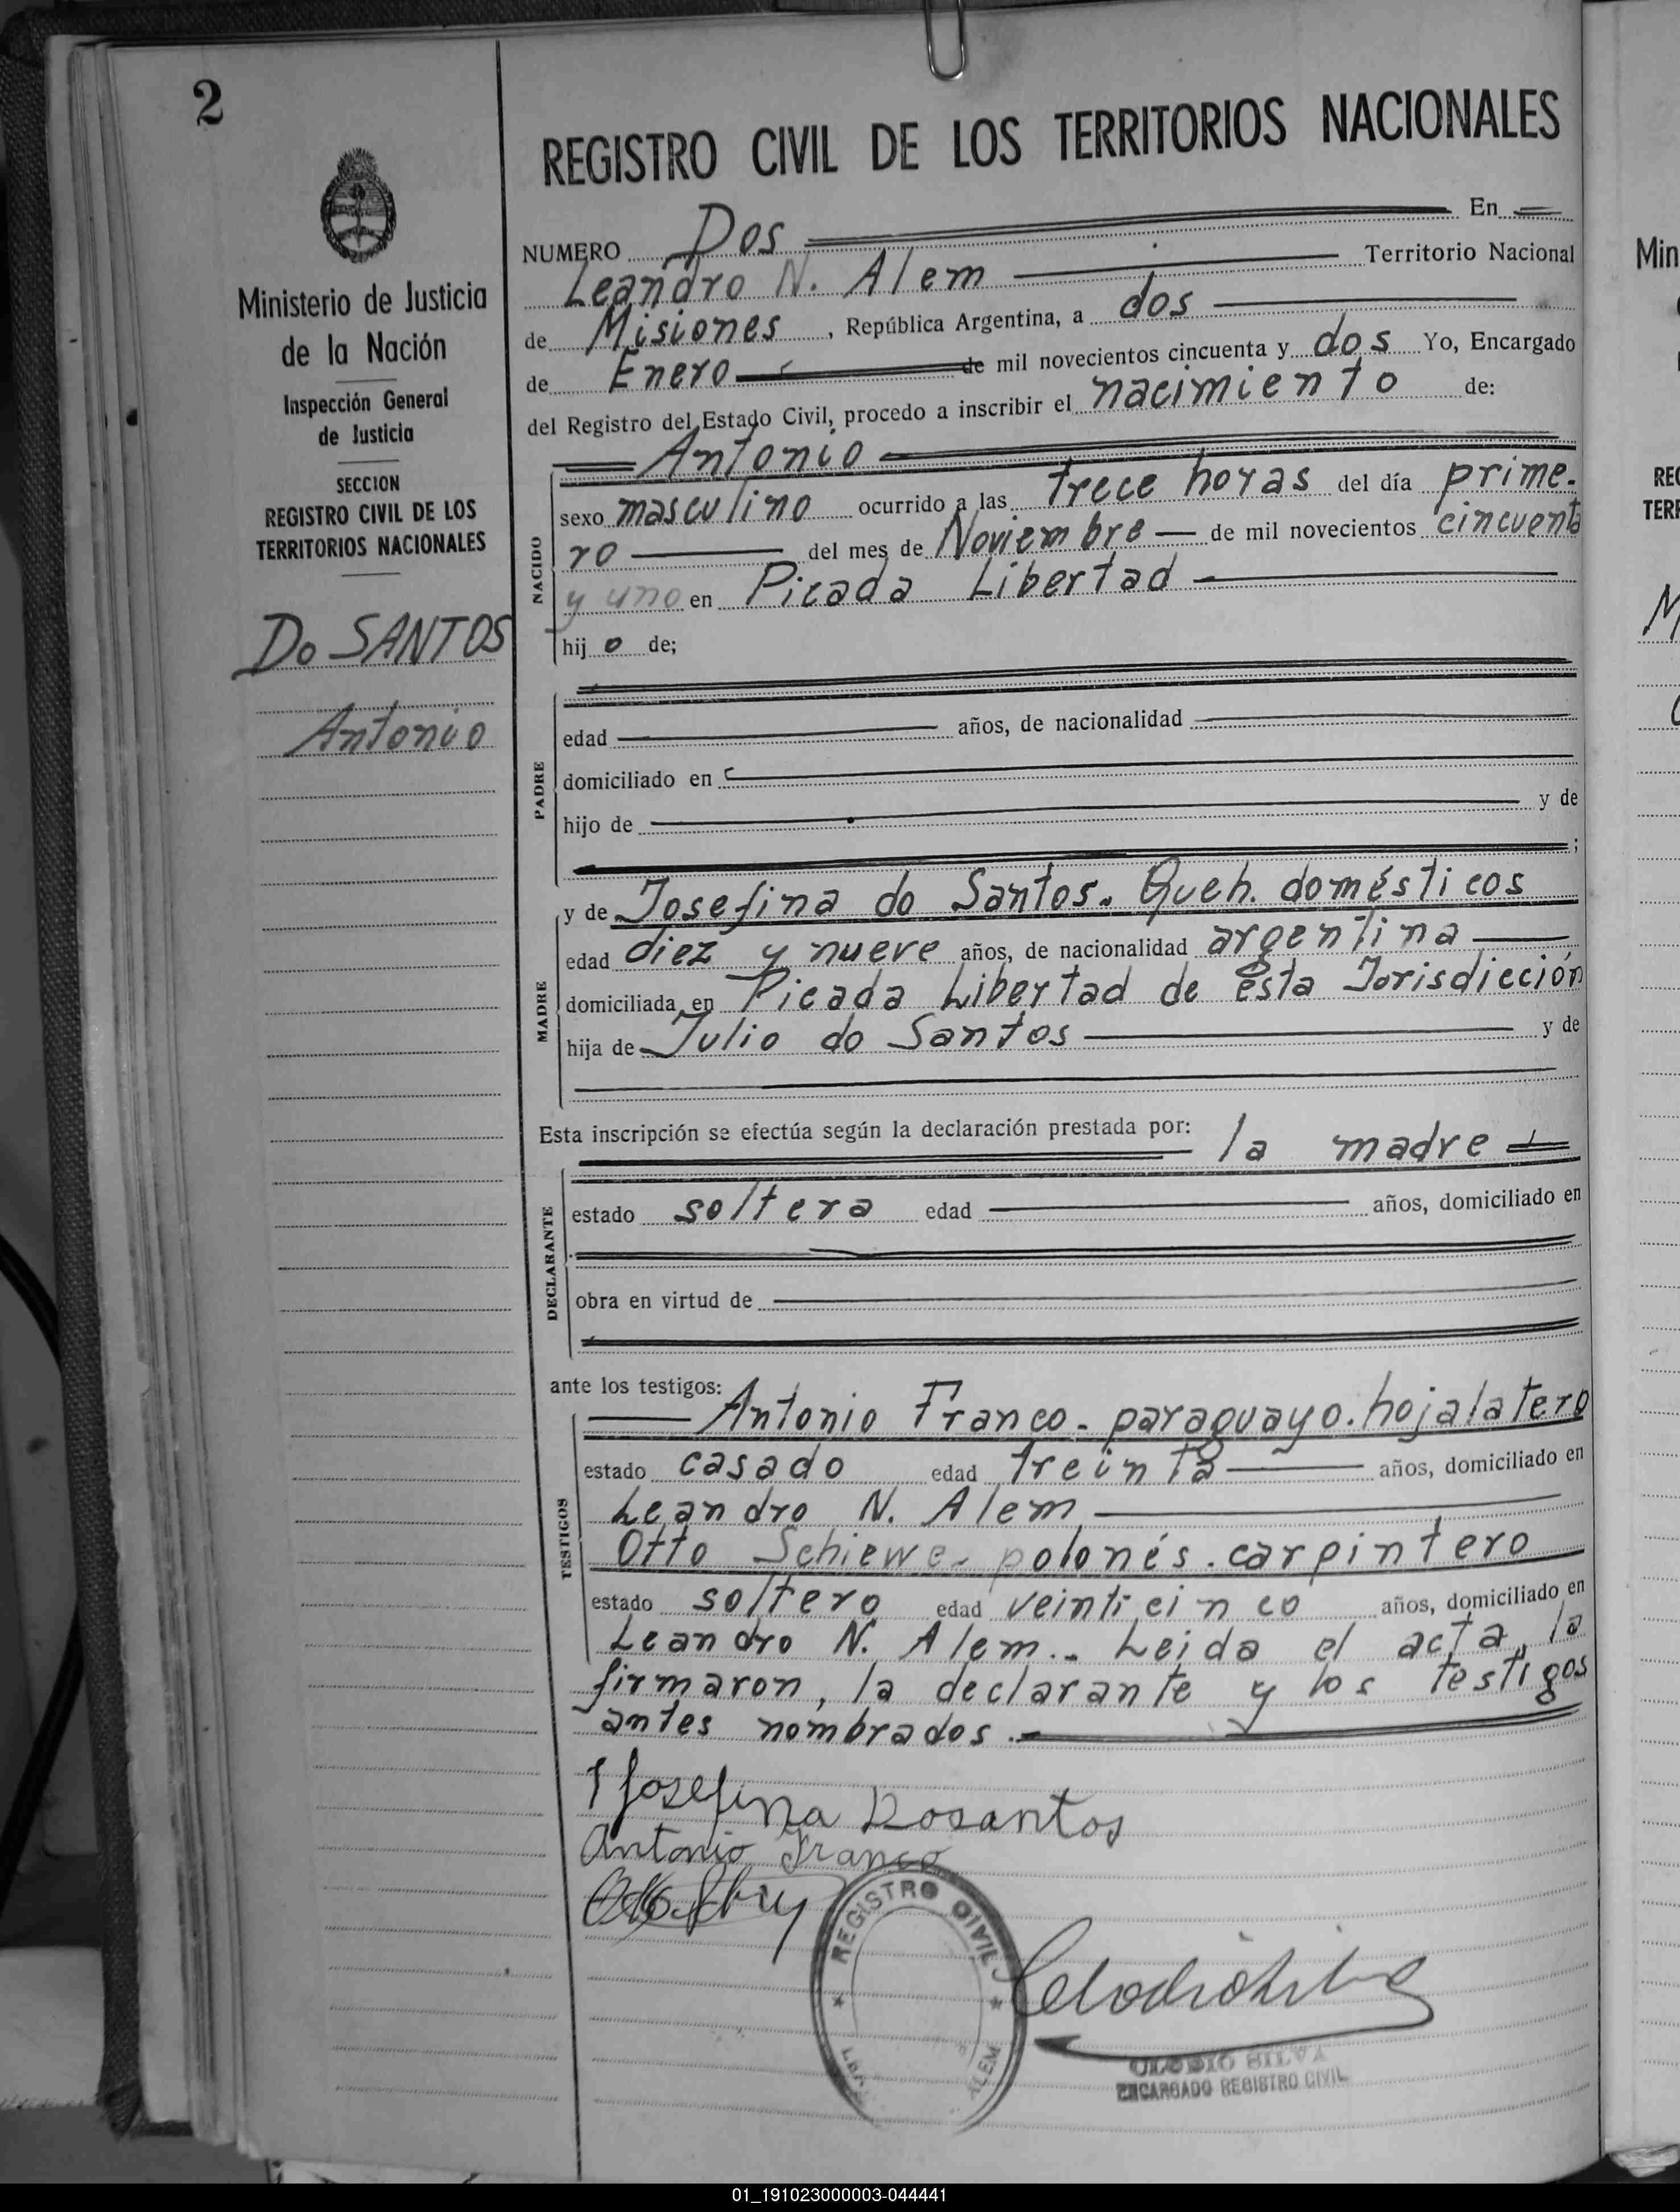 2
Ministerio de Justicia
de la Nación
Inspección General
de Justicia
SECCION
REGISTRO CIVIL DE LOS
TERRITORIOS NACIONALES
Do SANTOS
Antonio
REGISTRO CIVIL DE LOS TERRITORIOS NACIONALES
NUMERO Dos En
Leandro N. Alem Territorio Nacional
de Misiones, República Argentina, a dos
de Enero de mil novecientos cincuenta y dos Yo, Encargado
del Registro del Estado Civil, procedo a inscribir el nacimiento de:
Antonio
NACIDO
sexo masculino ocurrido a las trece horas del día prime-
ro del mes de Noviembre de mil novecientos cincuenta
y uno en Picada Libertad
hij o de;
PADRE
edad años, de nacionalidad
domiciliado en
hijo de y de
;
MADRE
y de Josefina do Santos. Queh. domésticos
edad diez y nueve años, de nacionalidad argentina
domiciliada en Picada Libertad de esta Jorisdicción
hija de Julio do Santos y de
Esta inscripción se efectúa según la declaración prestada por: la madre
DECLARANTE
estado soltera edad años, domiciliado en
obra en virtud de
ante los testigos:
TESTIGOS
Antonio Franco - paraguayo. hojalatero
estado casado edad treinta años, domiciliado en
Leandro N. Alem
Otto Schiewe - polonés. carpintero
estado soltero edad veinticinco años, domiciliado en
Leandro N. Alem.. Leida el acta, la
firmaron, la declarante y los testigos
antes nombrados.-
Josefina Dosantos
Antonio Franco
REGISTRO CIVIL
ALEM
CLODIO SILVA
ENCARGADO REGISTRO CIVIL
Min
REG
TERR
01_191023000003-044441